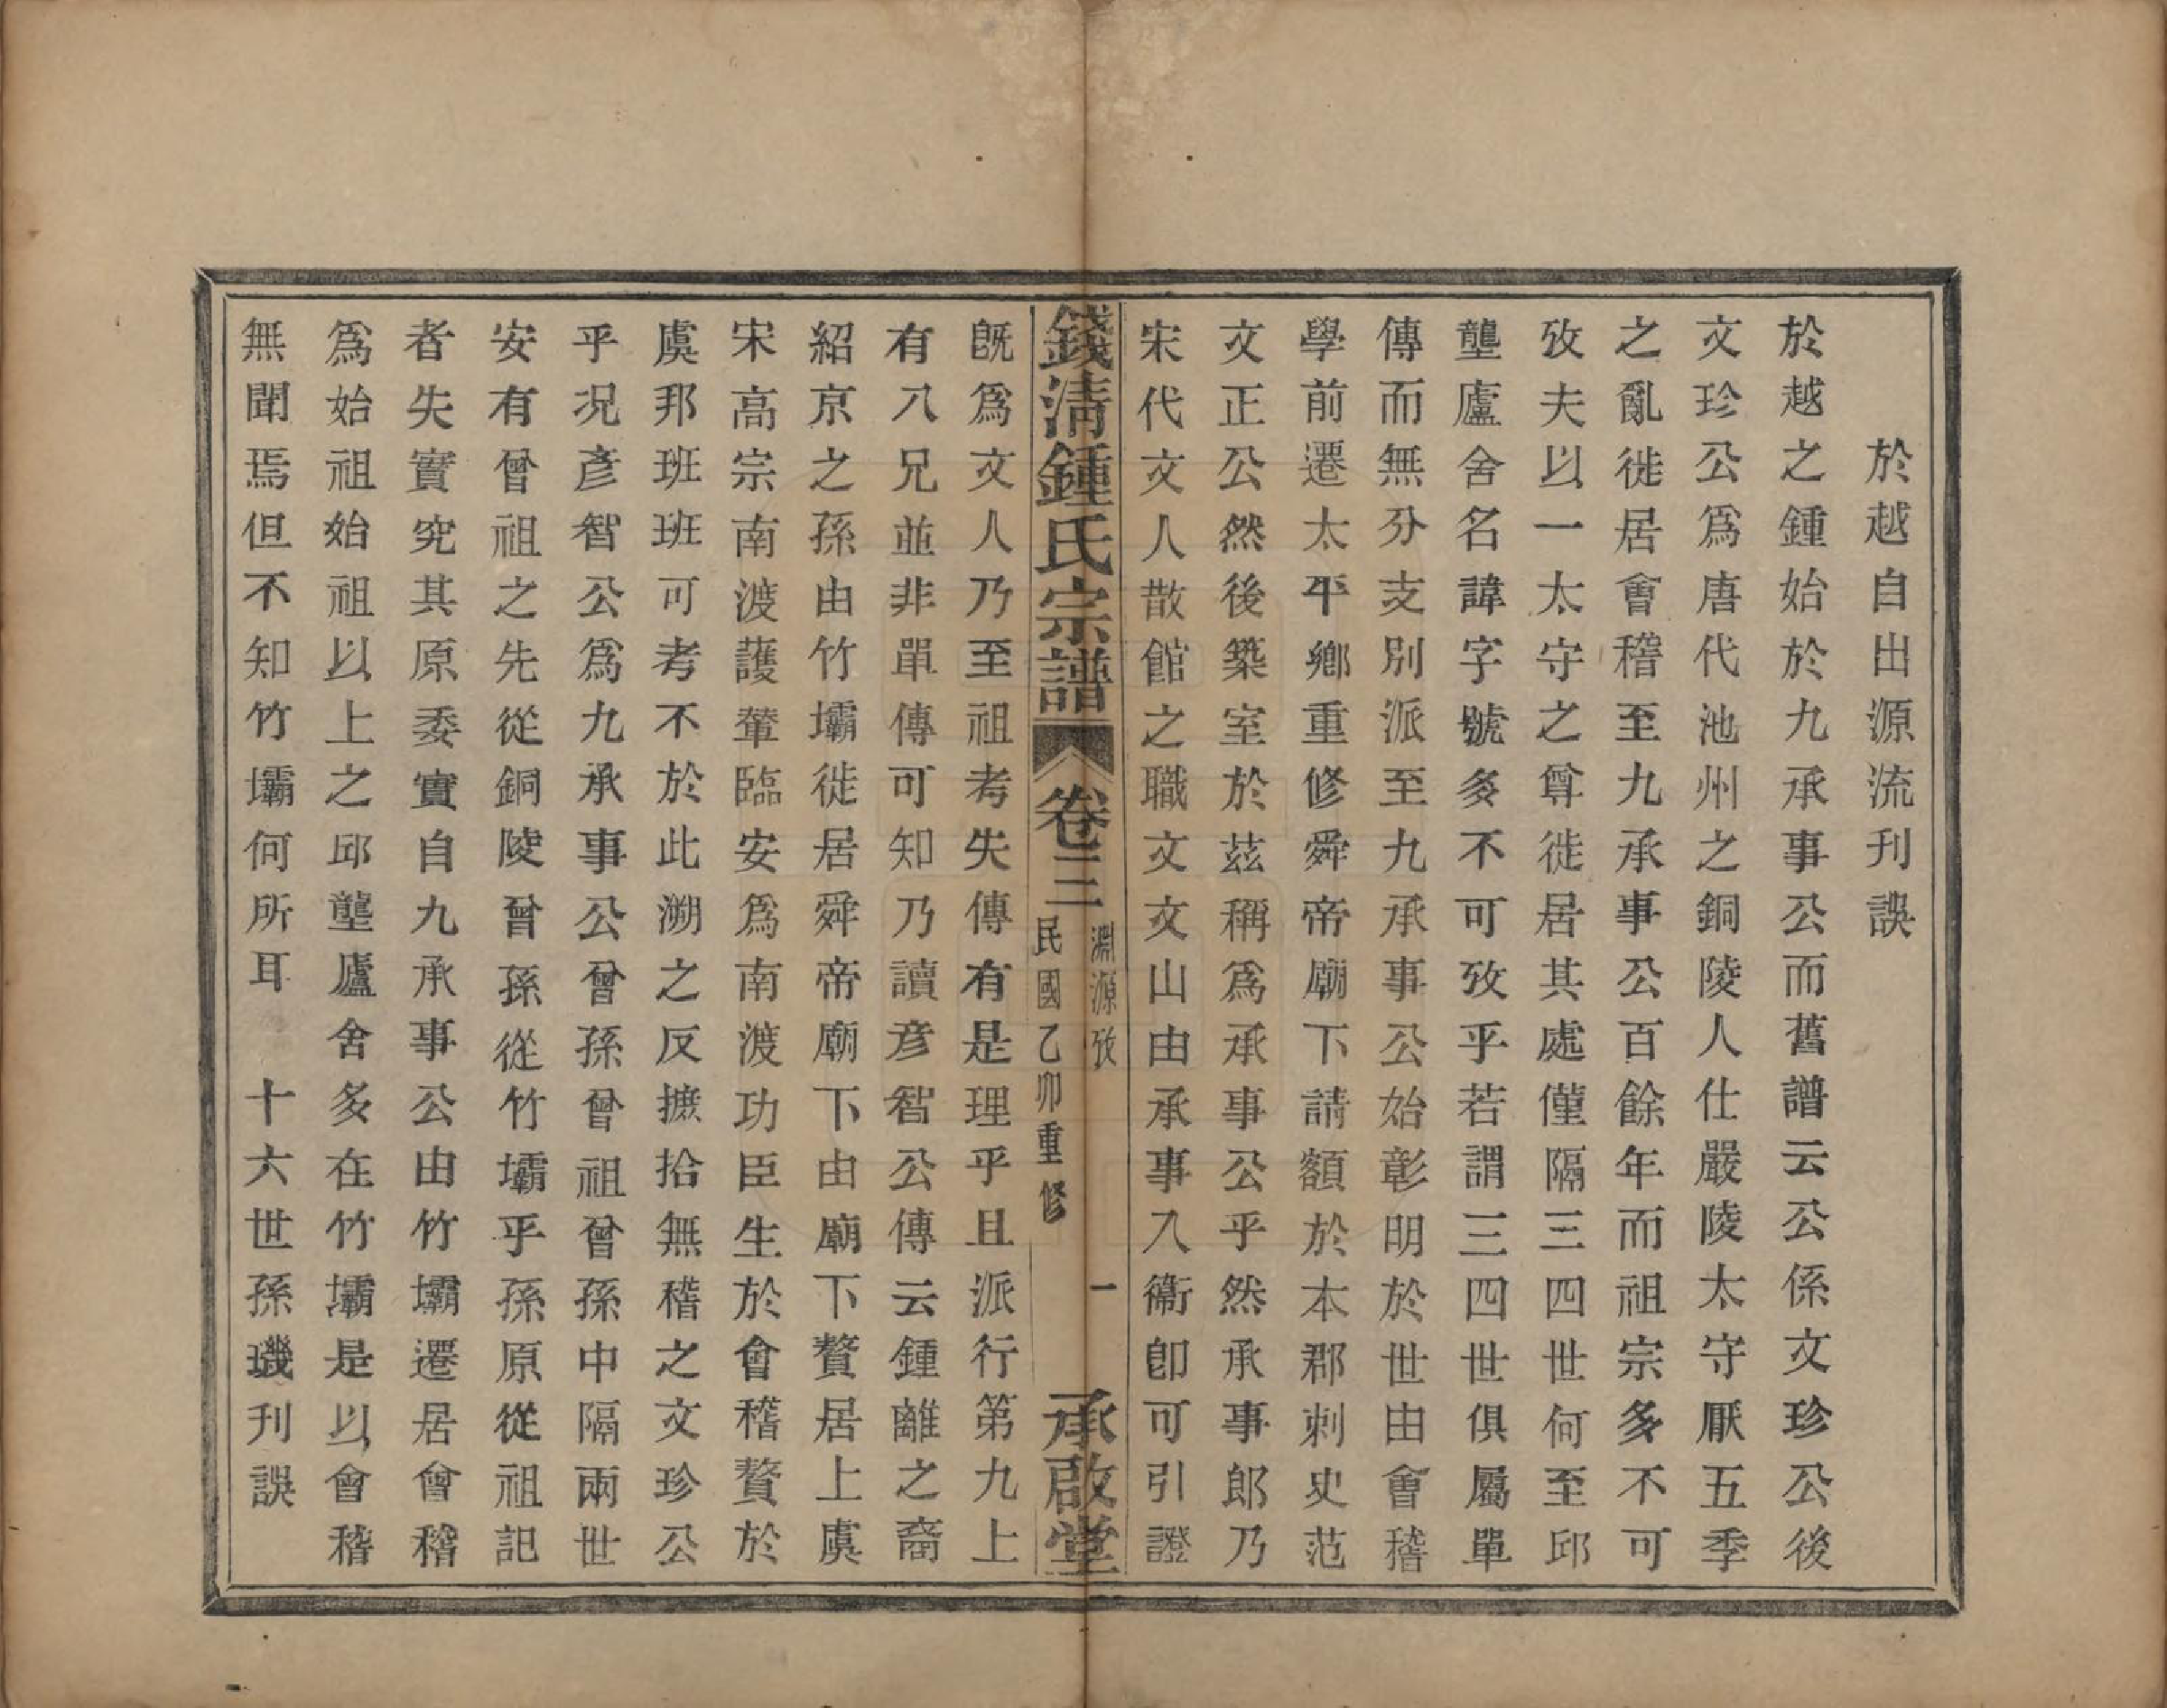 於越自出源流刋誤
於越之鍾始於九承事公而舊譜云公係文珍公後
文珍公爲唐代池州之銅陵人仕嚴陵太守厭五季
之亂徙居會稽至九承事公百餘年而祖宗多不可
攷夫以一太守之尊徙居其處僅隔三四世何至邱
壟廬舍名諱字號多不可攷乎若謂三四世俱屬單
傳而無分支別派至九承事公始彰明於世由會稽
學前遷太平鄉重修舜帝廟下請額於本郡刺史范
文正公然後築室於茲稱爲承事公乎然承事郎乃
宋代文人散館之職文文山由承事入衞卽可引證
錢清鍾氏宗譜 卷三 淵源攷 民國乙卯重修 一 承啟堂
旣爲文人乃至祖考失傳有是理乎且派行第九上
有八兄並非單傳可知乃讀彥智公傳云鍾離之裔
紹京之孫由竹壩徙居舜帝廟下由廟下贅居上虞
宋高宗南渡護輦臨安爲南渡功臣生於會稽贅於
虞邦班班可考不於此溯之反摭拾無稽之文珍公
乎況彥智公爲九承事公曾孫曾祖曾孫中隔兩世
安有曾祖之先從銅陵曾孫從竹壩乎孫原從祖記
者失實究其原委實自九承事公由竹壩遷居會稽
爲始祖始祖以上之邱壟廬舍多在竹壩是以會稽
無聞焉但不知竹壩何所耳　十六世孫璣刋誤